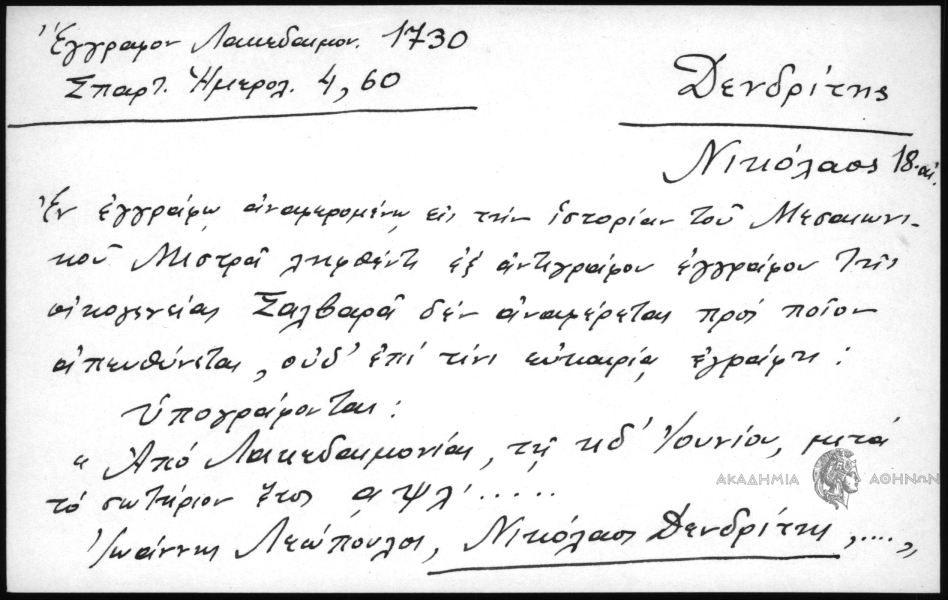 Ἔγγραφον Λακεδαιμον. 1730
Σπαρτ. Ἡμερολ. 4, 60
Δενδρίτης
Νικόλαος 18. αἰ.
Ἐν ἐγγράφῳ ἀναφερομένῳ εἰς τὴν ἱστορίαν τοῦ Μεσαιωνι-
κοῦ Μιστρᾶ ληφθέντι ἐξ ἀντιγράφου ἐγγράφου τῆς
οἰκογενείας Σαλβαρᾶ δὲν ἀναφέρεται πρὸς ποῖον
ἀπευθύνεται, οὐδ' ἐπὶ τίνι εὐκαιρίᾳ ἐγράφη :
Ὑπογράφονται :
" Ἀπὸ Λακεδαιμονίας, τῇ κδ' Ἰουνίου, μετὰ
τὸ σωτήριον ἔτος αψλ' .....
ΑΚΑΔΗΜΙΑ ΑΘΗΝΩΝ
Ἰωάννης Λεώπουλος, Νικόλαος Δενδρίτης, ....,,